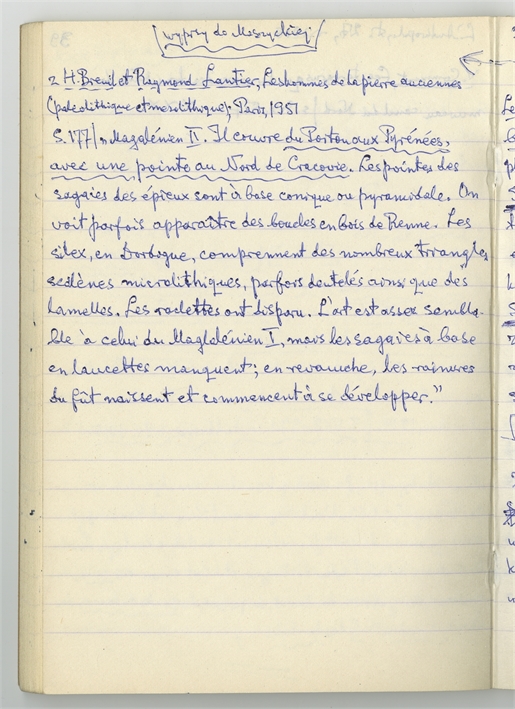 [wypisy do Maszyckiej]
z H. Breuil et Raymond Lantier, Les hommes de la pierre anciennes
(paléolithique et mésolithique), Paris, 1951
S. 177/ „Magdalénien II. Il couvre du Poitou aux Pyrénées,
avec une pointe au Nord de Cracovie. Les pointes des
sagaies des épieux sont à base conique ou pyramidale. On
voit parfois apparaître des boucles en bois de Renne. Les
silex, en Dordogne, comprennent des nombreux triangles
scalènes microlithiques, parfois dentelés ainsi que des
lamelles. Les raclettes ont disparu. L'art est assez sembla-
ble à celui du Magdalénien I, mais les sagaies à base
en lancettes manquent; en revanche, les rainures
du fût naissent et commencent à se développer."